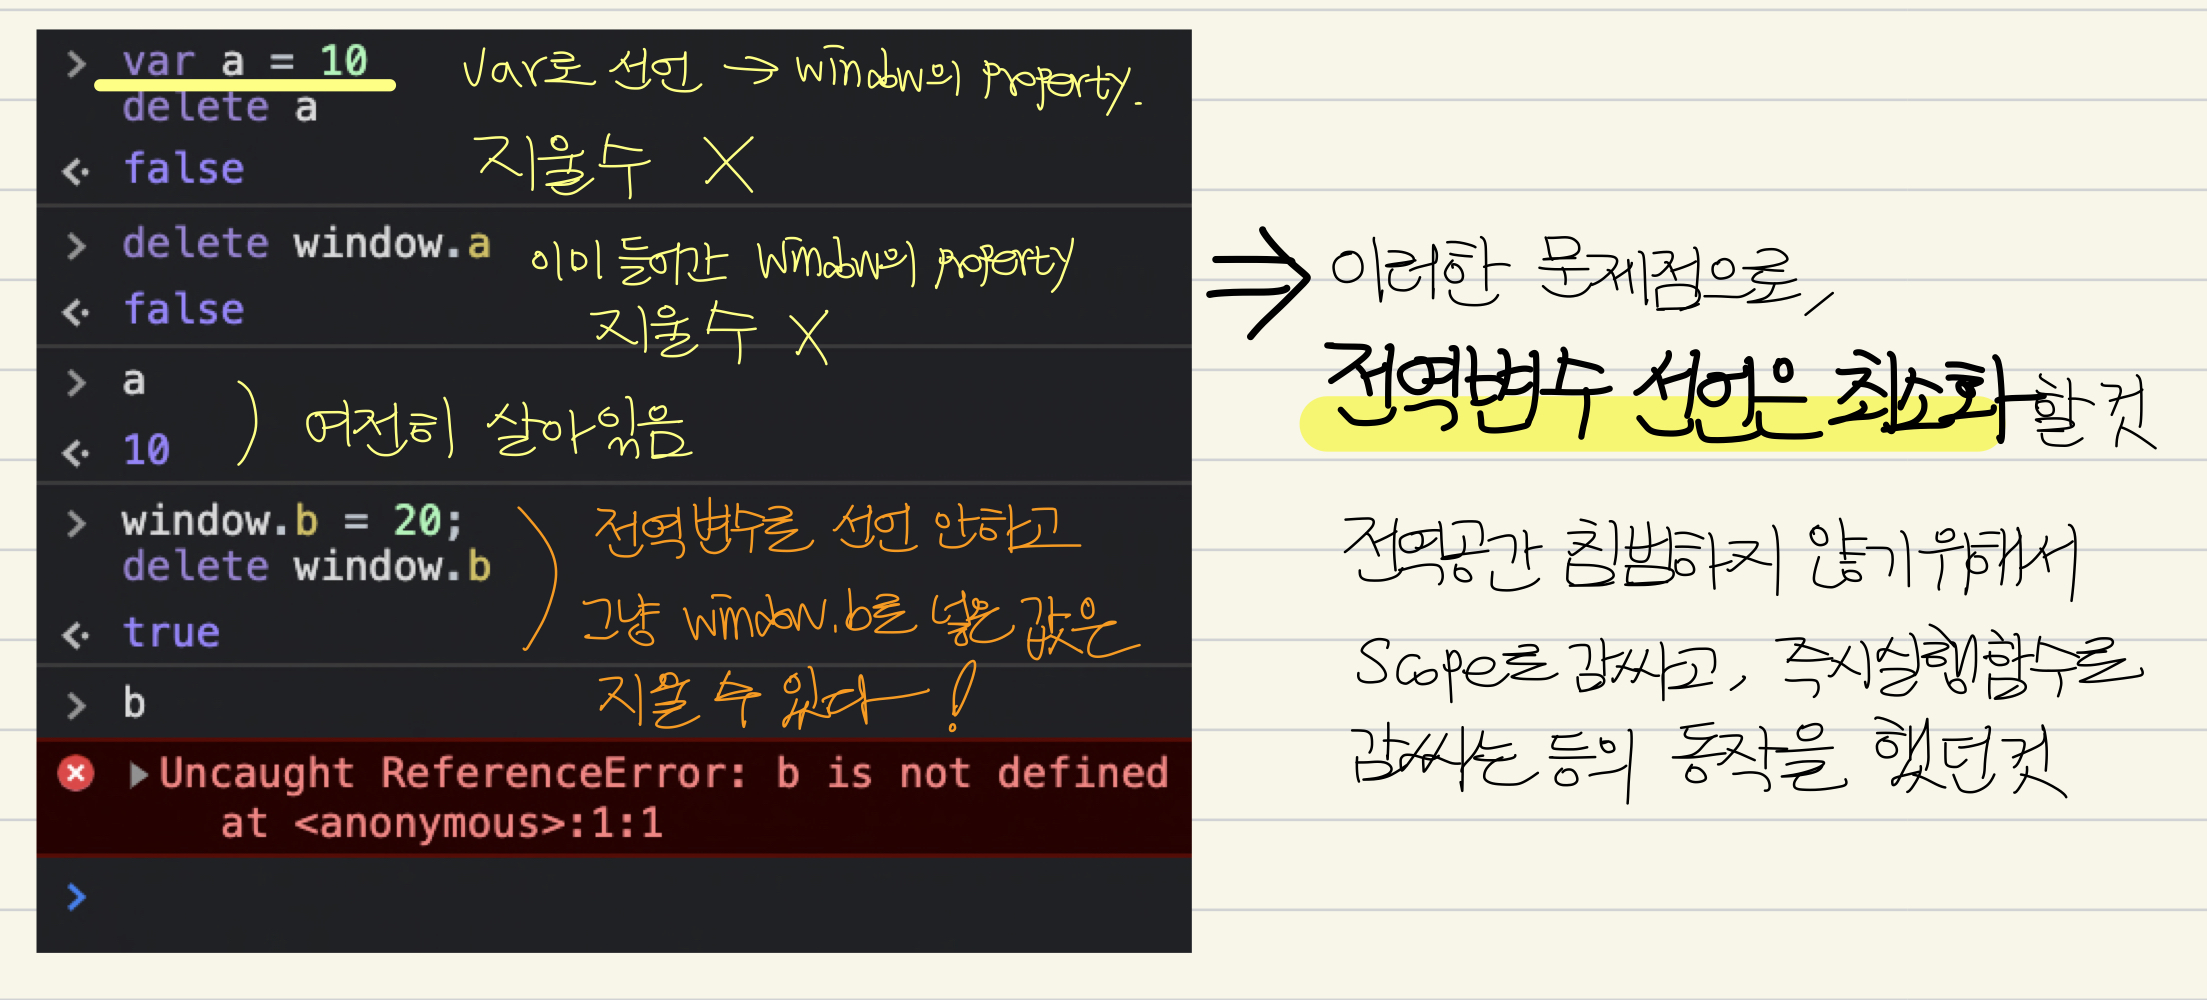 > var a = 10
delete a
var로 선언 → window의 property.
지울수 X
<· false
> delete window.a
이미 들어간 window의 property
지울수 X
<· false
> a
<· 10
여전히 살아있음
> window.b = 20;
delete window.b
<· true
전역변수를 선언 안하고
그냥 window.b로 넣은 값은
지울 수 있다!
> b
Uncaught ReferenceError: b is not defined
at <anonymous>:1:1
>
⇒ 이러한 문제점으로,
전역변수 선언은 최소화할 것
전역공간 침범하지 않기위해서
Scope로 감싸고, 즉시실행함수로
감싸는 등의 동작을 했던것